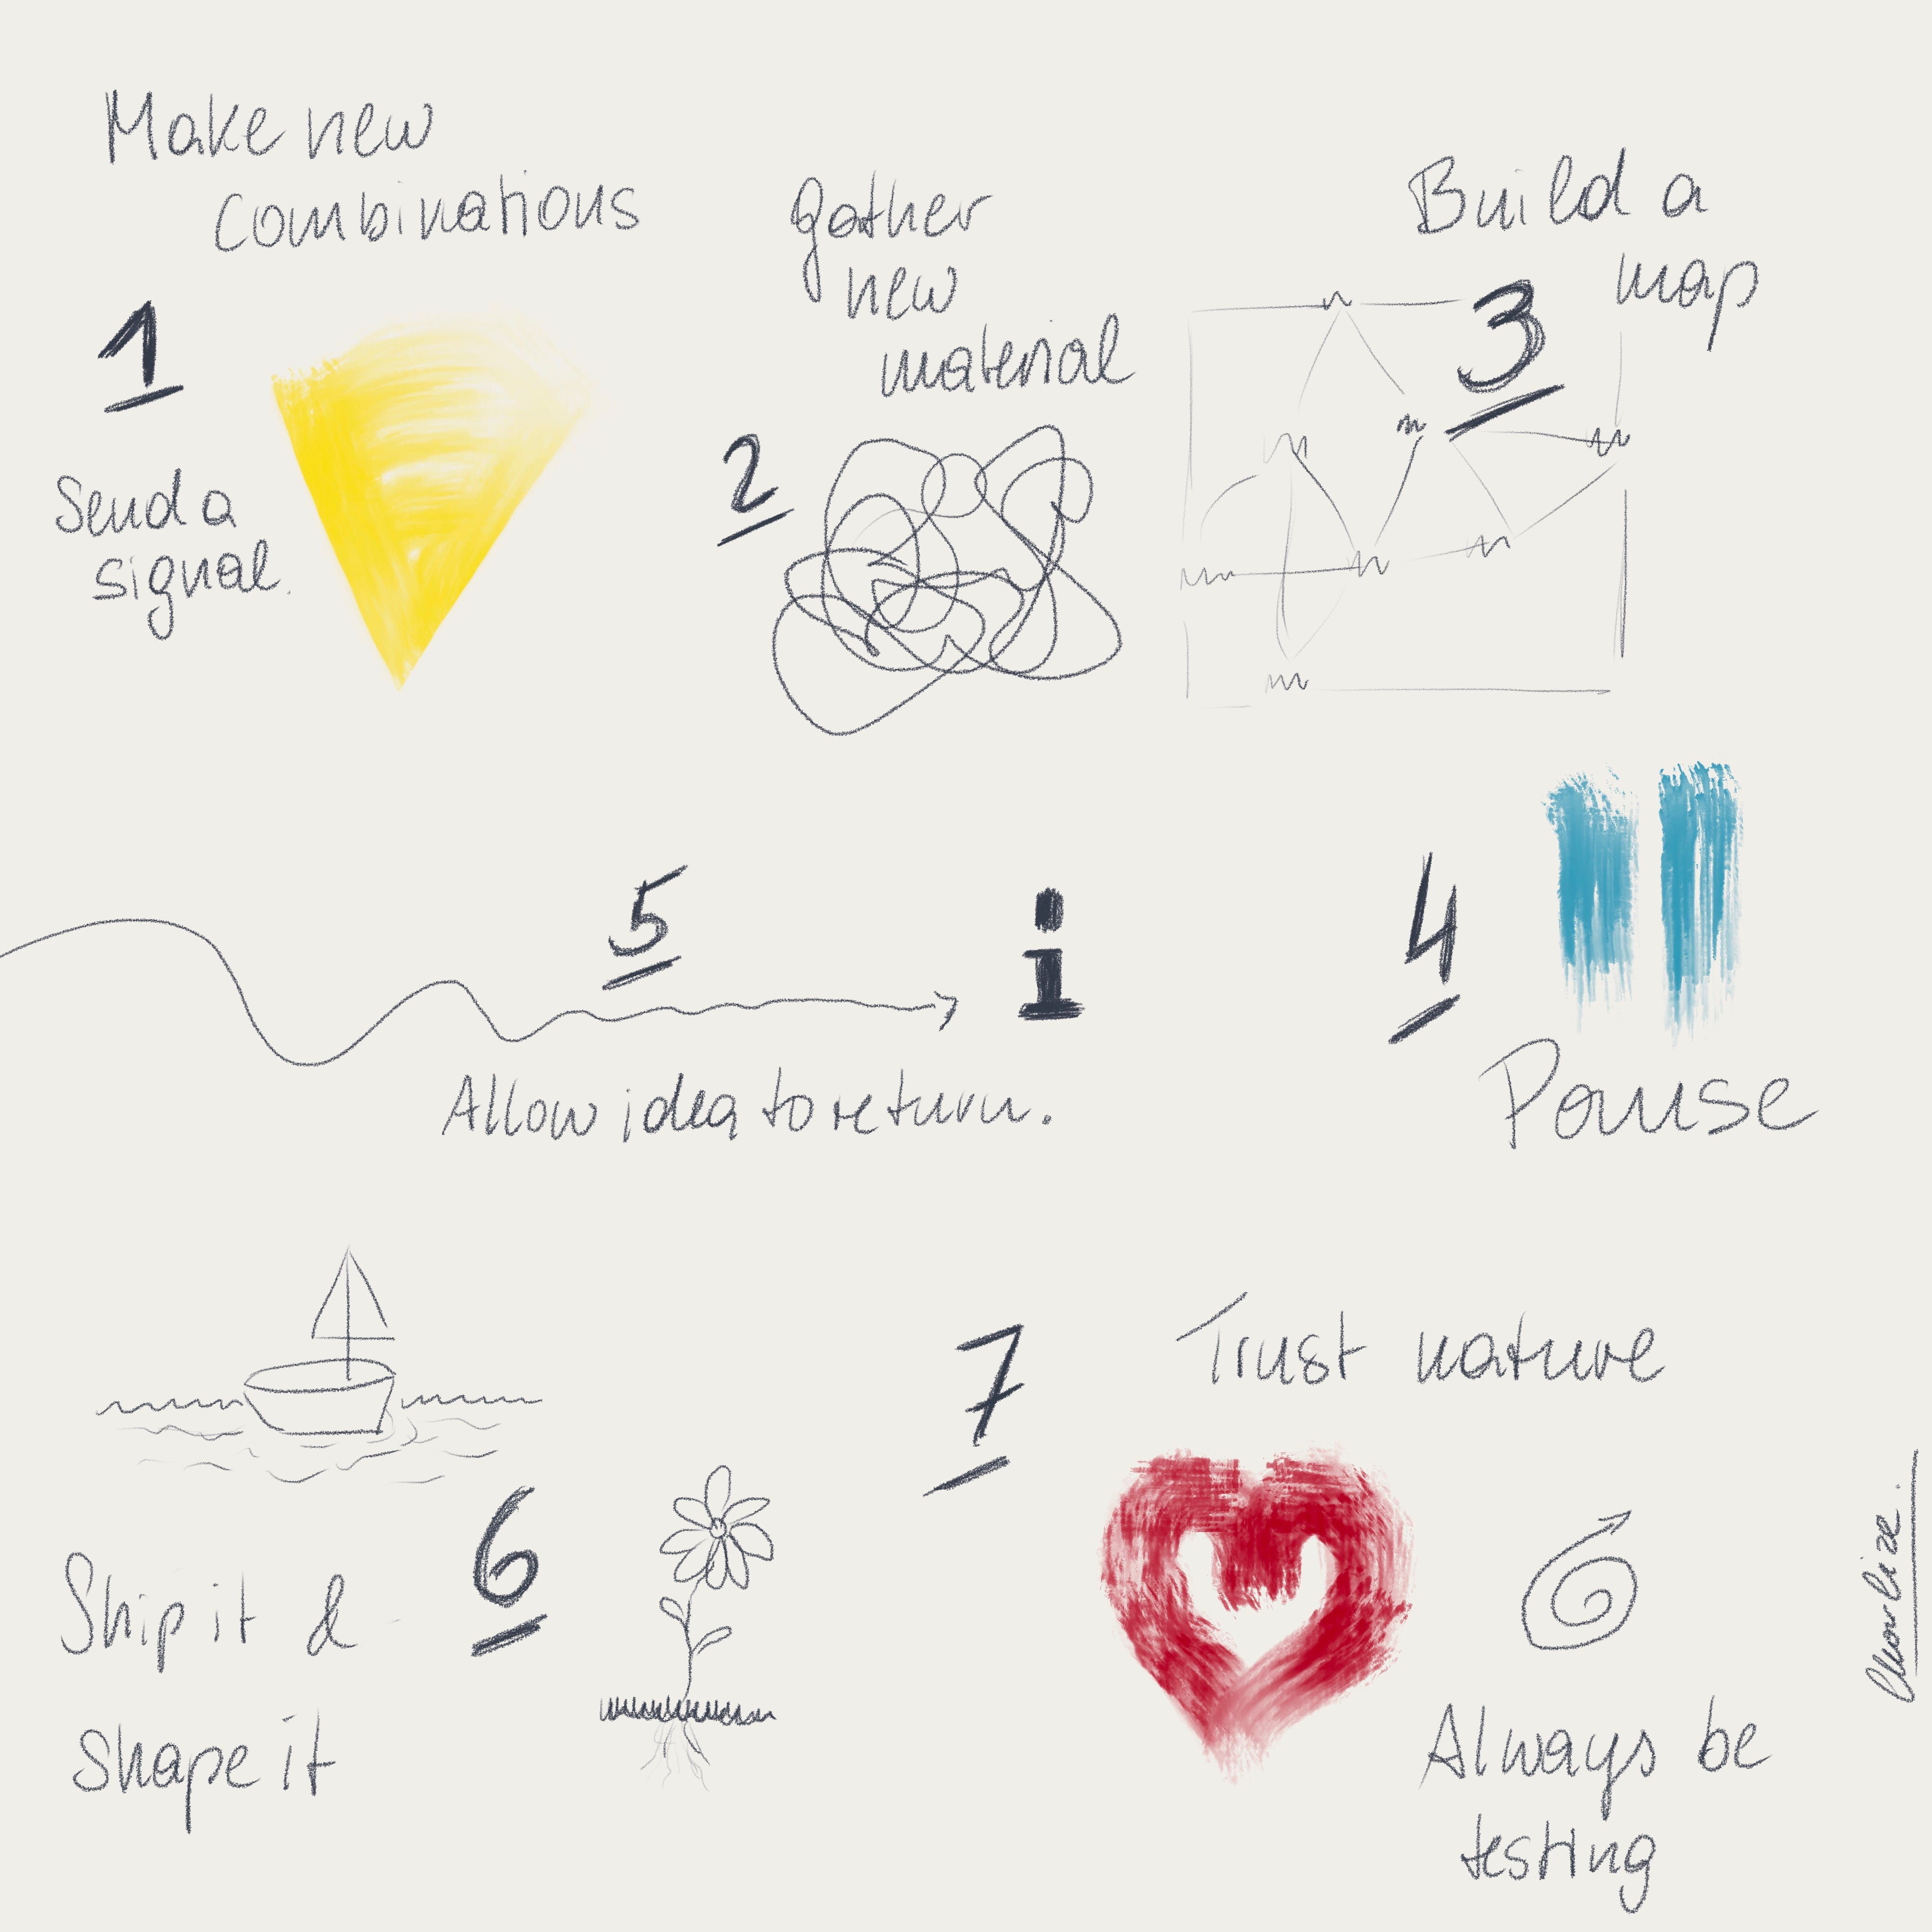 Make new
combinations
1
Send a
signal.
gather
new
material
2
Build a
map
3
4
Pause
5
i
Allow idea to return.
6
Ship it &
shape it
7
Trust nature
Always be
testing